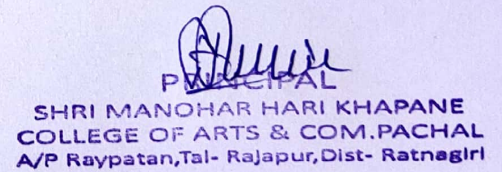 PRINCIPAL
SHRI MANOHAR HARI KHAPANE
COLLEGE OF ARTS & COM.PACHAL
A/P Raypatan,Tal- Rajapur,Dist- Ratnagiri